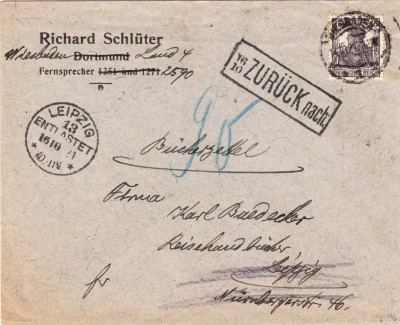 Richard Schlüter
Wiesbaden Dortmund Land 4
Fernsprecher 1251 und 1271 2590
16/10 ZURÜCK nach:
LEIPZIG
13
ENTLASTET
16 10 21
95
Bücherzettel
Firma
Karl Baedecker
Reisehandbücher
Leipzig
Nürnbergerstr. 46.
fr